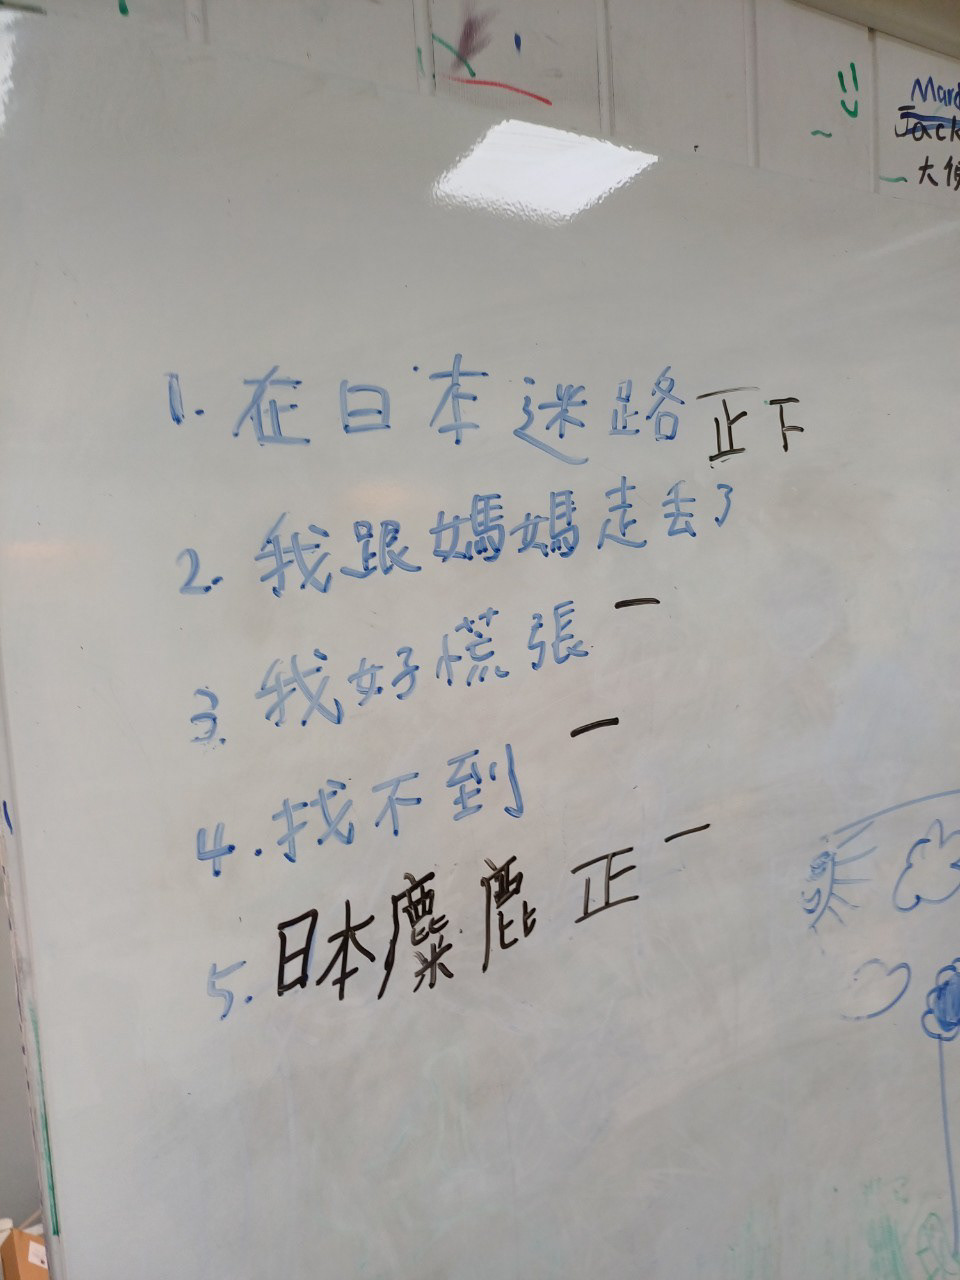 Jack
大
1. 在日本迷路 正下
2. 我跟媽媽走丟了
3. 我好慌張 一
4. 找不到 一
5. 日本麋鹿 正一